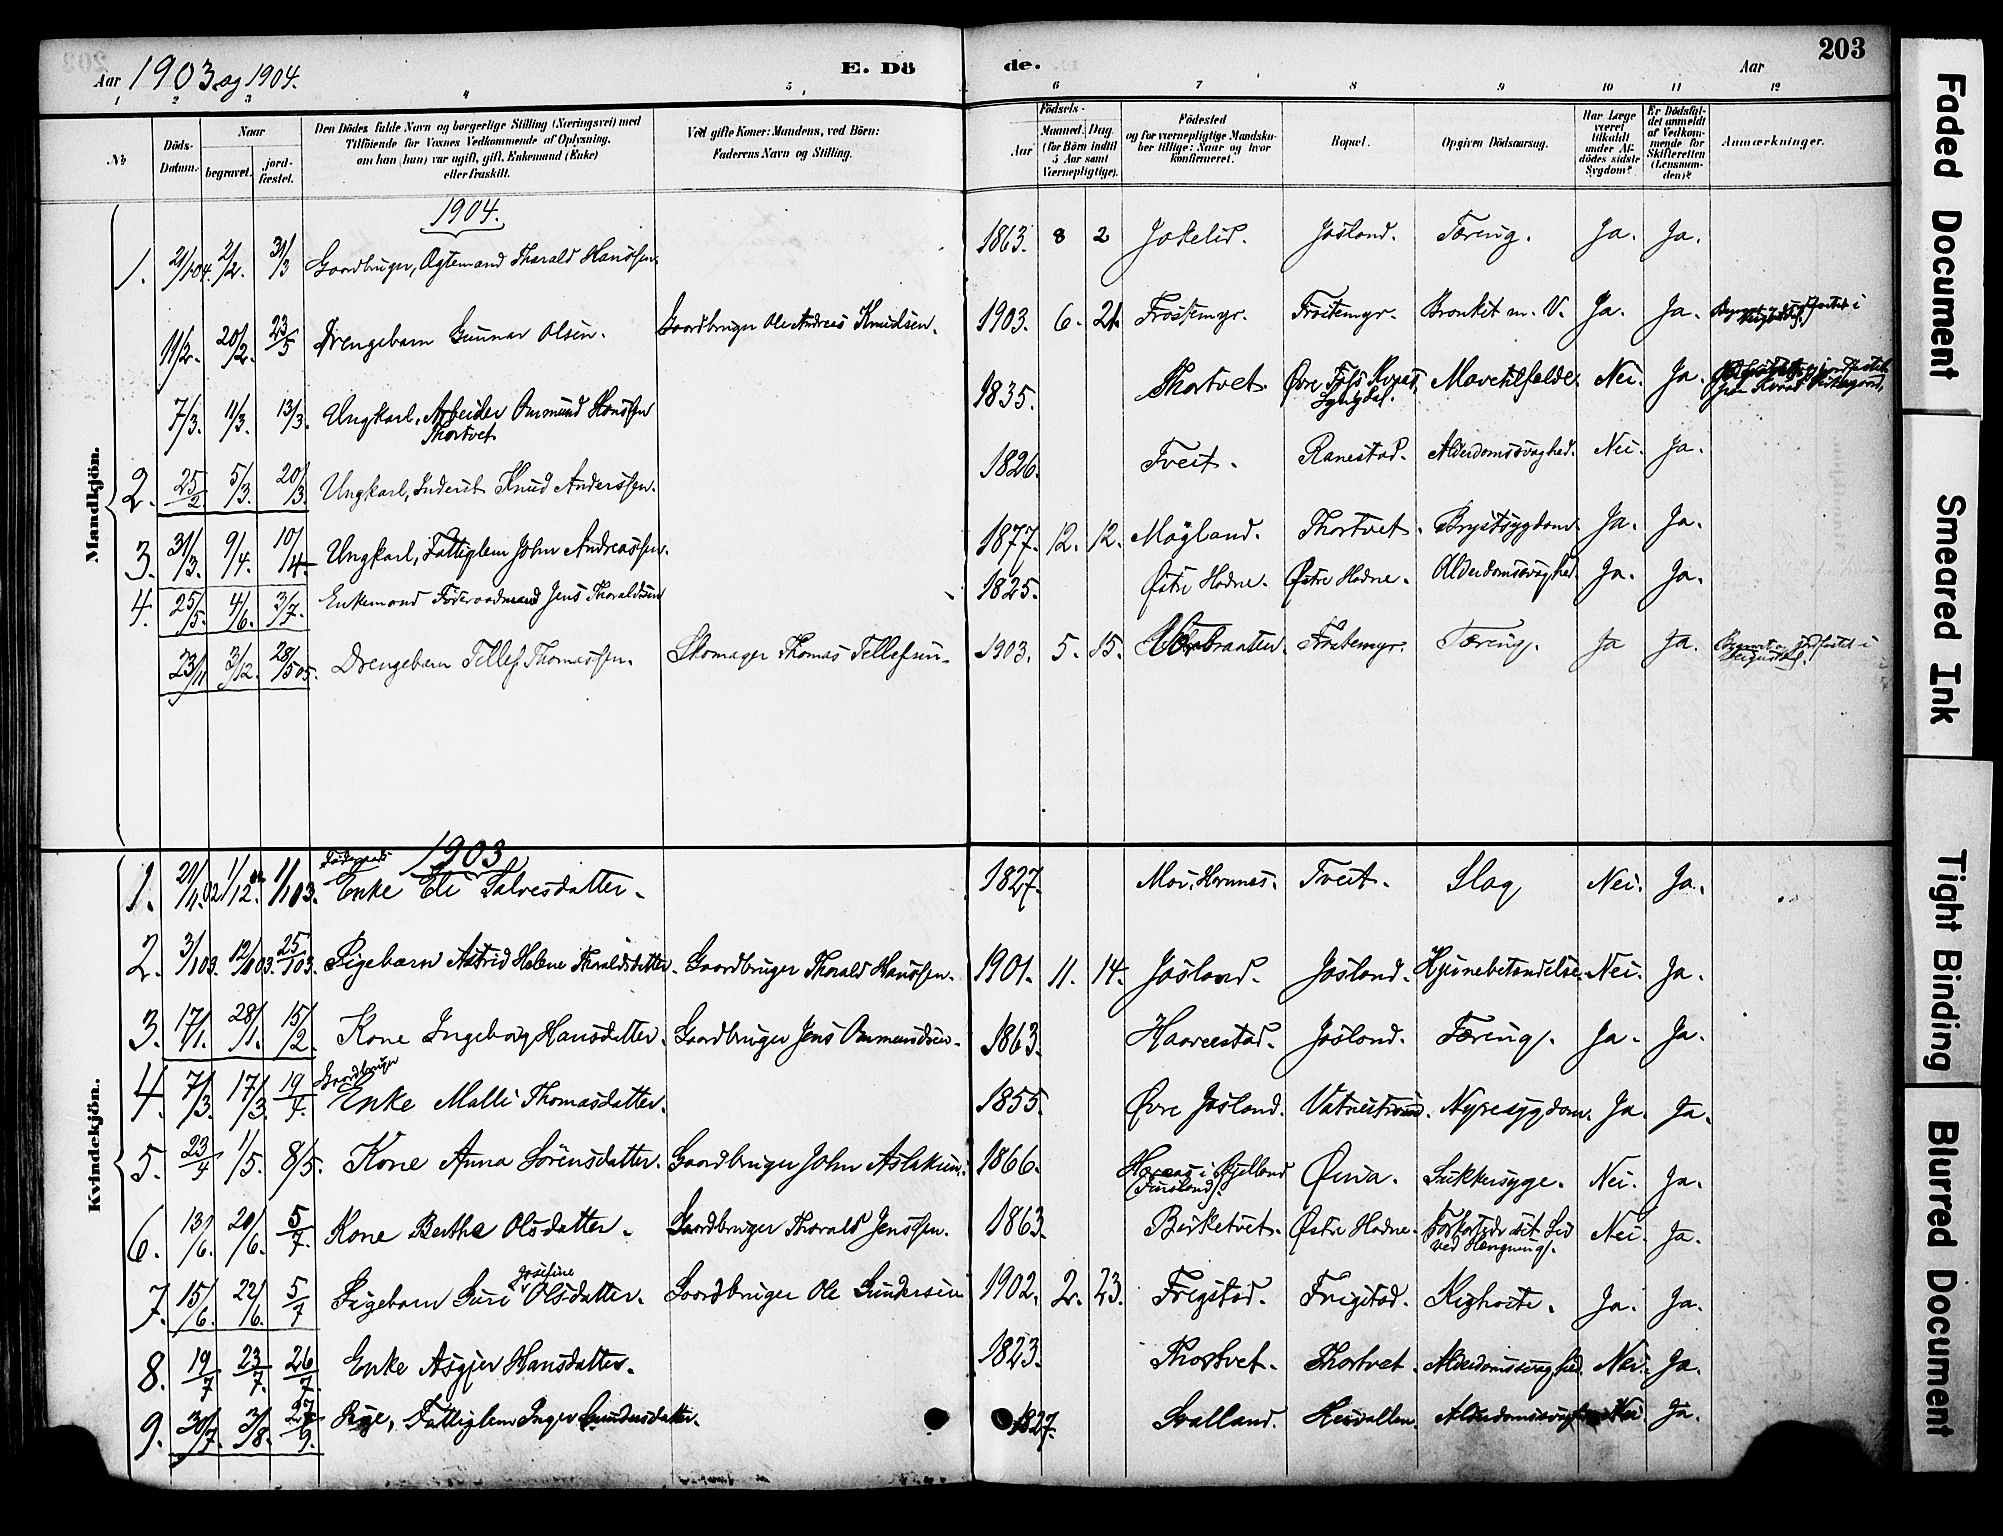 203
Aar 1903 og 1904.
E. Dö
de.
Aar
1 2 3 4 5 6 7 8 9 10 11 12
No
Döds-Datum.
Naar
begravet.
jord-fæstet.
Den Dödes fulde Navn og borgerlige Stilling (Næringsvei) med
Tilföiende for Voxnes Vedkommende af Oplysning,
om han (hun) var ugift, gift, Enkemand (Enke)
eller fraskilt.
Ved gifte Koner: Mandens, ved Börn:
Faderens Navn og Stilling.
Födsels-
Aar
Maaned. Dag.
(for Börn indtil
5 Aar samt
Værnepligtige).
Födested
og for værnepligtige Mandska-
ber tillige: Naar og hvor
konfirmeret.
Bopæl.
Opgiven Dödsaarsag.
Har Læge
været
tilkaldt
under Af-
dödes sidste
Sygdom?
Er Dödsfal-
det anmeldt
af Vedkom-
mende for
Skifteretten
(Lensman-
den)?
Anmærkninger.
Mandkjön.
1904.
1. 21/1 04. 2/2. 31/3 Gaardbruger, Ægtemand Tharald Hanssen. 1863. 8 2 Jokelid. Josland. Tæring. Ja. Ja.
11/2. 20/2. 23/5 Drengebarn Gunnar Olsen. Gaardbruger Ole Andreas Knudsen. 1903. 6. 21. Fröstemyr. Fröstemyr. Bronkit m. V. Ja. Ja.
7/3. 11/3. 13/3. Ungkarl, Arbeider Ommund Hanssen Thortvet 1835. Thortvet. Øvre Foss Kvaas Lyngdal. Mavetilfælde. Nei. Ja.
2. 25/2. 5/3. 20/3. Ungkarl, Inderst Knud Anderssen. 1826. Tveit. Ranestad. Alderdomssvaghed. Nei. Ja.
3. 31/3. 9/4. 10/4 Ungkarl, Fattiglem John Andreassen. 1877. 12. 12. Mögland. Thortvet. Brystsygdom Ja. Ja.
4. 25/5. 4/6. 3/7. Enkemand Föderaadmand Jens Tharaldsen 1825. Østre Hodne. Østre Hodne. Alderdomssvaghed. Ja. Ja.
23/11 3/12. 28/5 05. Drengebarn Tellef Thomassen. Skomager Thomas Tellefsen. 1903. 5. 15. Fröstemyr. Tæring. Ja Ja.
Kvindekjön.
1903
1. 21/11 02 1/12 02 1/1 03. Föderaads Enke Eli Salvesdatter. 1827. Moi, Hornnes. Tveit. Slag Nei. Ja.
2. 3/1 03. 12/1 03. 25/1 03. Pigebarn Astrid Helene Tharaldsdatter. Gaardbruger Tharald Hanssen. 1901. 11. 14. Josland. Josland. Hjernebetændelse. Nei. Ja.
3. 17/1. 28/1. 15/2. Kone Ingeborg Hansdatter. Gaardbruger Jens Ommundsen. 1863. Haavestad. Josland. Tæring. Ja. Ja.
4. 7/3. 17/3. 19/4. Gaardbruger Enke Malli Thomasdatter. 1855. Øvre Josland. Vatnestraum. Nyresygdom. Ja. Ja.
5. 23/4 1/5. 8/5. Kone Anna Sörensdatter. Gaardbruger John Aslaksen. 1866. i Bjelland (Finsland). Nei. Ja. Sukkersyge.
6. 13/6. 20/6. 5/7. Kone Berthe Olsdatter. Gaardbruger Tharald Jenssen. 1863. Birketvet. Østre Hodne. Forkortede sit Liv ved Hængning. Nei. Ja.
7. 15/6. 22/6. 5/7 Pigebarn Guri Josefine Olsdatter. Gaardbruger Ole Gundersen 1902. 2. 23. Frigstad. Frigstad. Kighoste. Ja. Ja.
8. 19/7 23/7. 26/7. Enke Asgjer Hansdatter. 1823. Thortvet. Thortvet. Alderdomssvaghed. Nei. Ja.
9. 30/7. 3/8. 27/9. Pige, Fattiglem Inger Gundersdatter. 1827. Svalland. Alderdomssvaghed Nei. Ja.
Faded Document
Smeared Ink
Tight Binding
Blurred Document